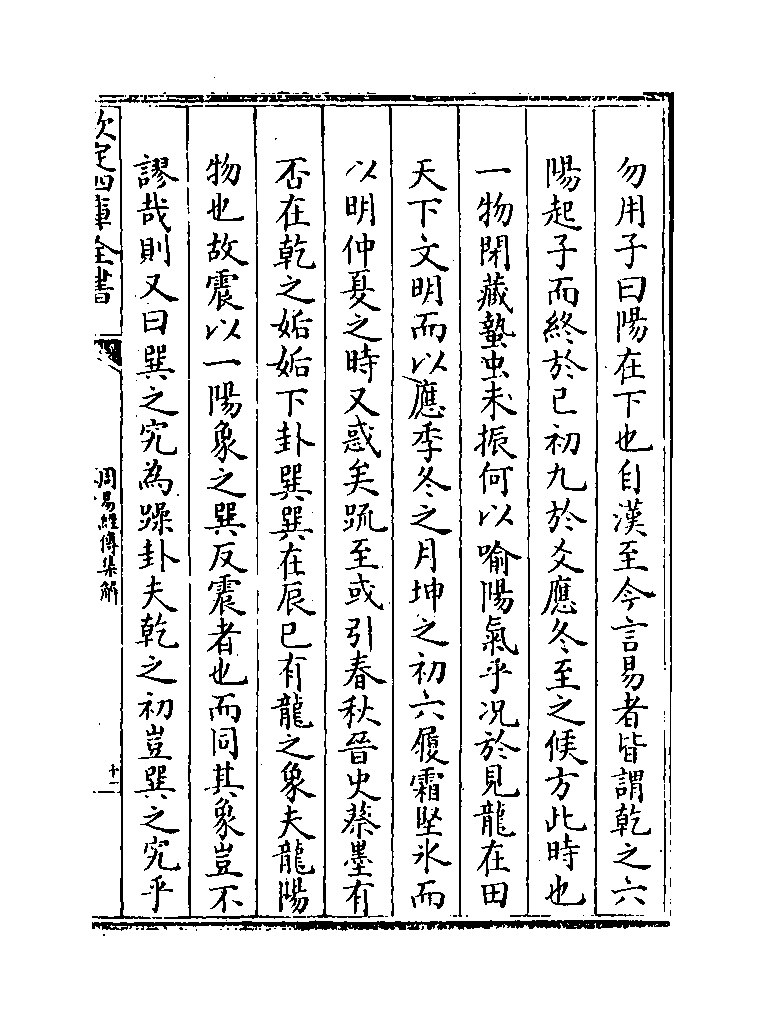 勿用子曰陽在下也自漢至今言易者皆謂乾之六
陽起子而終於巳初九於爻應冬至之候方此時也
一物閉藏蟄虫未振何以喻陽氣乎况於見龍在田
天下文明而以應季冬之月坤之初六履霜堅氷而
以明仲夏之時又惑矣䟽至或引春秋晉史蔡墨有
否在乾之姤姤下卦巽巽在辰巳有龍之象夫龍陽
物也故震以一陽象之巽反震者也而同其象豈不
謬哉則又曰巽之究為躁卦夫乾之初豈巽之究乎
欽定四庫全書
周易經傳集解
十二